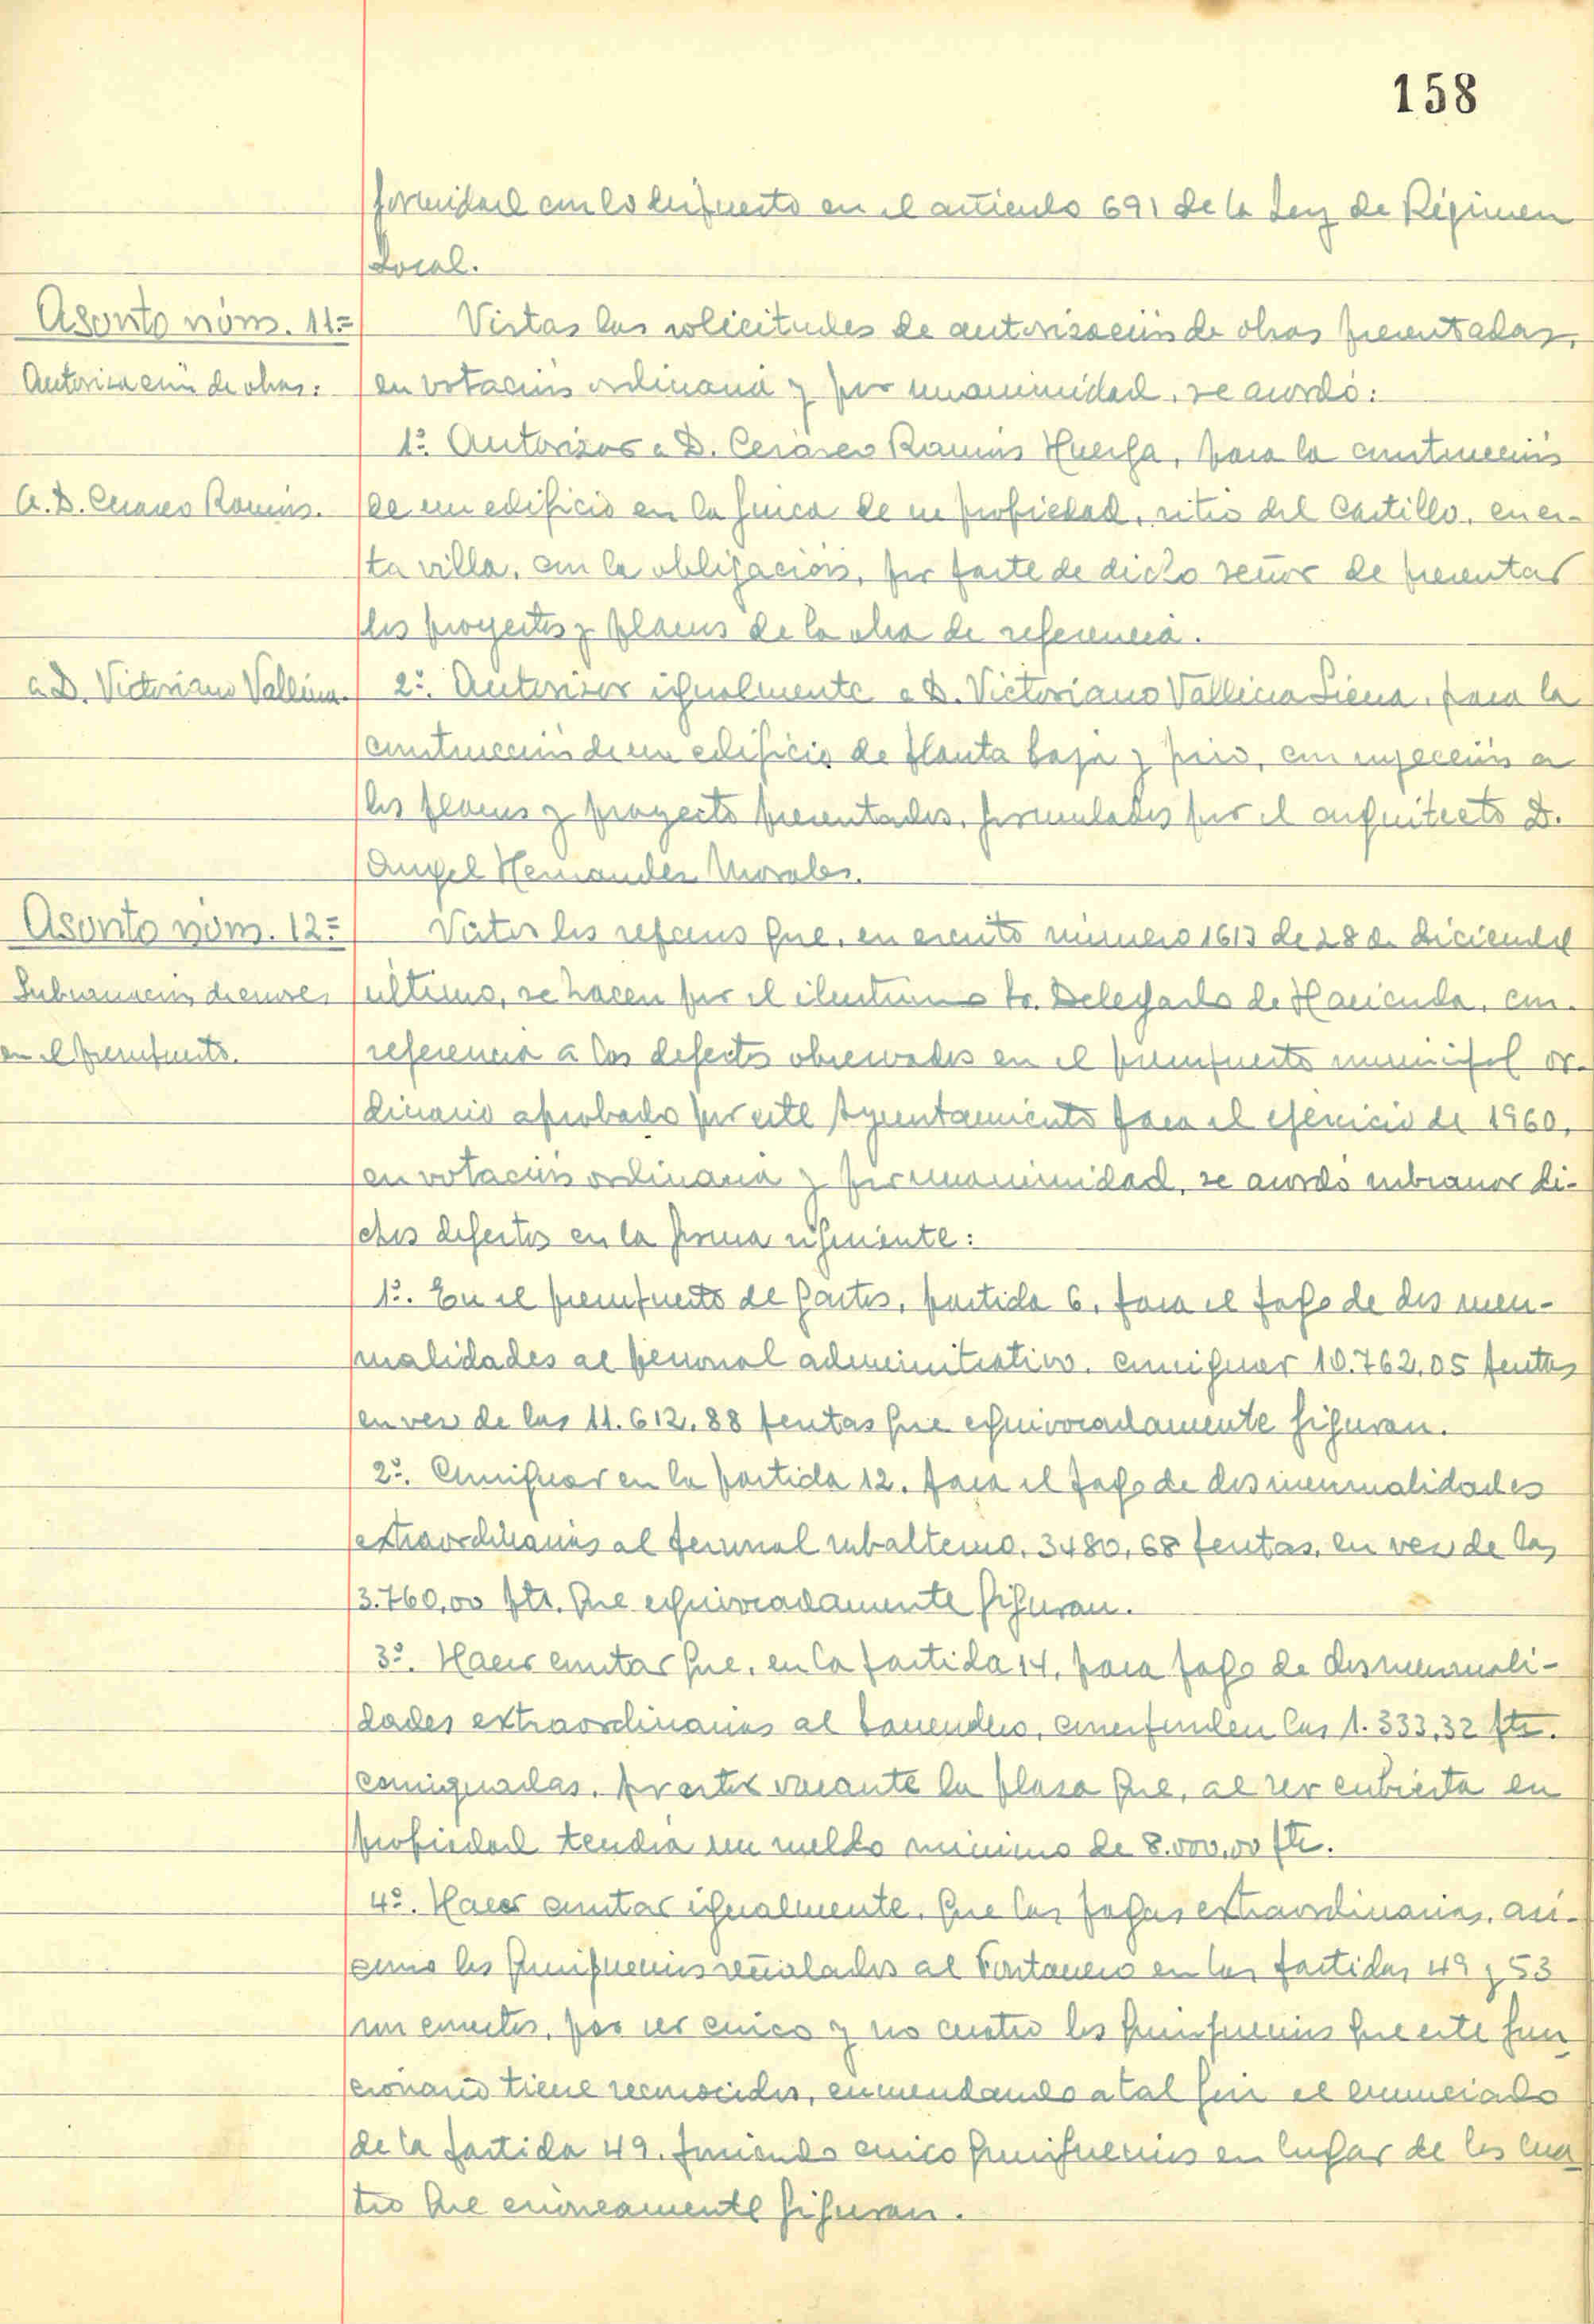 158
formidad con lo dispuesto en el artículo 691 de la Ley de Régimen
Local.
Asunto núm. 11=
Vistas las solicitudes de autorización de obras presentadas,
Autorización de obras:
en votación ordinaria y por unanimidad, se acordó:
1º. Autorizar a D. Cesáreo Ramos Huerga, para la construcción
A. D. Cesáreo Ramos.
de un edificio en la finca de su propiedad, sitio del Castillo, en es-
ta villa, con la obligación, por parte de dicho señor de presentar
los proyectos y planos de la obra de referencia.
a D. Victoriano Vallina.
2º. Autorizar igualmente a D. Victoriano Vallina Siena, para la
construcción de un edificio de planta baja y piso, con sujeción a
los planos y proyecto presentados, formulados por el arquitecto D.
Angel Hernandez Morales.
Asunto núm. 12=
Vistos los reparos que, en escrito número 1613 de 28 de diciembre
Subsanación de errores
último, se hacen por el ilustrísimo Sr. Delegado de Hacienda, con
en el presupuesto.
referencia a los defectos observados en el presupuesto municipal or-
dinario aprobado por este Ayuntamiento para el ejercicio de 1960,
en votación ordinaria y por unanimidad, se acordó subsanar di-
chos defectos en la forma siguiente:
1º. En el presupuesto de gastos, partida 6, para el pago de dos men-
sualidades al personal administrativo, consignar 10.762,05 pesetas
en vez de las 11.612,88 pesetas que equivocadamente figuran.
2º. Consignar en la partida 12, para el pago de dos mensualidades
extraordinarias al personal subalterno, 3480,68 pesetas, en vez de las
3.760,00 pts. que equivocadamente figuran.
3º. Hacer constar que, en la partida 14, para pago de dos mensuali-
dades extraordinarias al barrendero, corresponden las 1.333,32 pts.
consignadas, por estar vacante la plaza que, al ser cubierta en
propiedad tendría un sueldo mínimo de 8.000,00 pts.
4º. Hacer constar igualmente, que las pagas extraordinarias, así
como los quinquenios señalados al Fontanero en las partidas 49 y 53
son correctos, por ser cinco y no cuatro los quinquenios que este fun
cionario tiene reconocidos, enmendando a tal fin el enunciado
de la partida 49, poniendo cinco quinquenios en lugar de los cua
tro que erróneamente figuran.